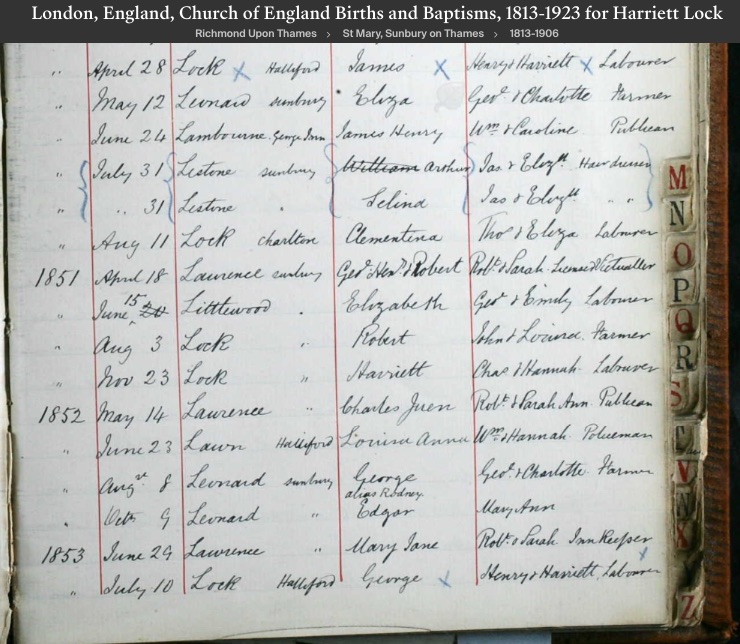 London, England, Church of England Births and Baptisms, 1813-1923 for Harriett Lock
Richmond Upon Thames > St Mary, Sunbury on Thames > 1813-1906
" April 28 Lock x Halliford James x Henry & Harriett x Labourer
" May 12 Leonard sunbury Eliza Geo. & Charlotte Farmer
" June 24 Lambourne. George Inn James Henry Wm & Caroline Publican
" July 31 Lestone sunbury William Arthur Jas. & Elizth Hairdresser
" " 31 Lestone " Selina Jas & Elizth " "
" Aug 11 Lock charlton Clementina Thos & Eliza Labourer
1851 April 18 Lawrence sunbury Geo. Hen. & Robert Robt. & Sarah. Licensed Victualler
" June 15 Littlewood " Elizabeth Geo. & Emily Labourer
" Aug 3 Lock " Robert John & Farmer
" Nov 23 Lock " Harriett Chas & Hannah Labourer
1852 May 14 Lawrence " Charles Robt. & Sarah Ann. Publican
" June 23 Lawn Halliford Louisa Anna Wm & Hannah. Policeman
" Augst 8 Leonard sunbury George Geo. & Charlotte. Farmer
alias Rodney.
" Octr 9 Leonard " Edgar Mary Ann
1853 June 29 Lawrence " Mary Jane Robt. & Sarah InnKeeper
" July 10 Lock Halliford George x Henry & Harriett, Labourer x
M
N
O
P
Q
R
S
T
V
W
X
Z